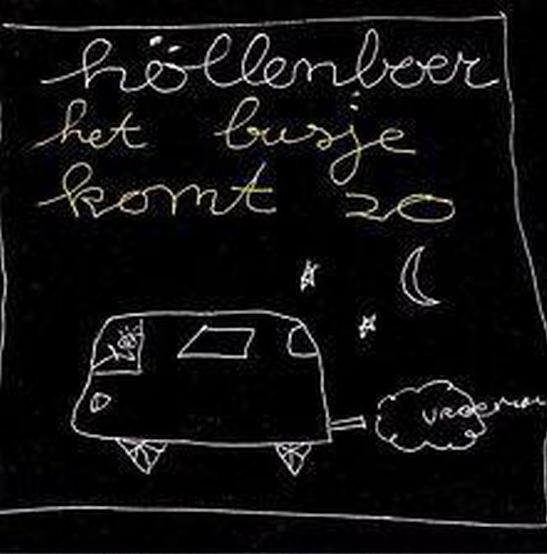 höllenboer
het busje
komt zo